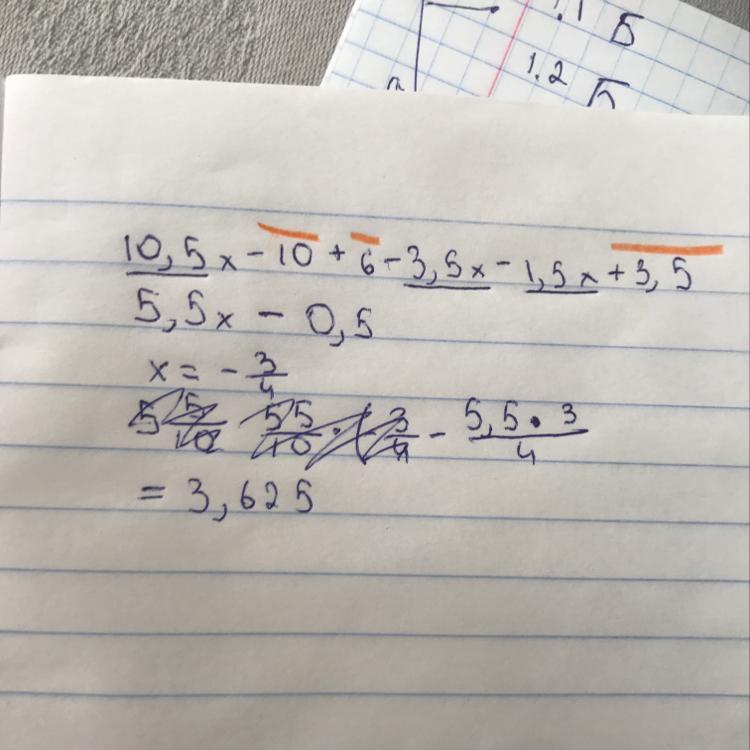 .1 Б
1.2 Б
10,5x - 10 + 6 - 3,5x - 1,5x + 3,5
5,5x - 0,5
x = - 3/4
- 5,5 • 3/4
= 3,625